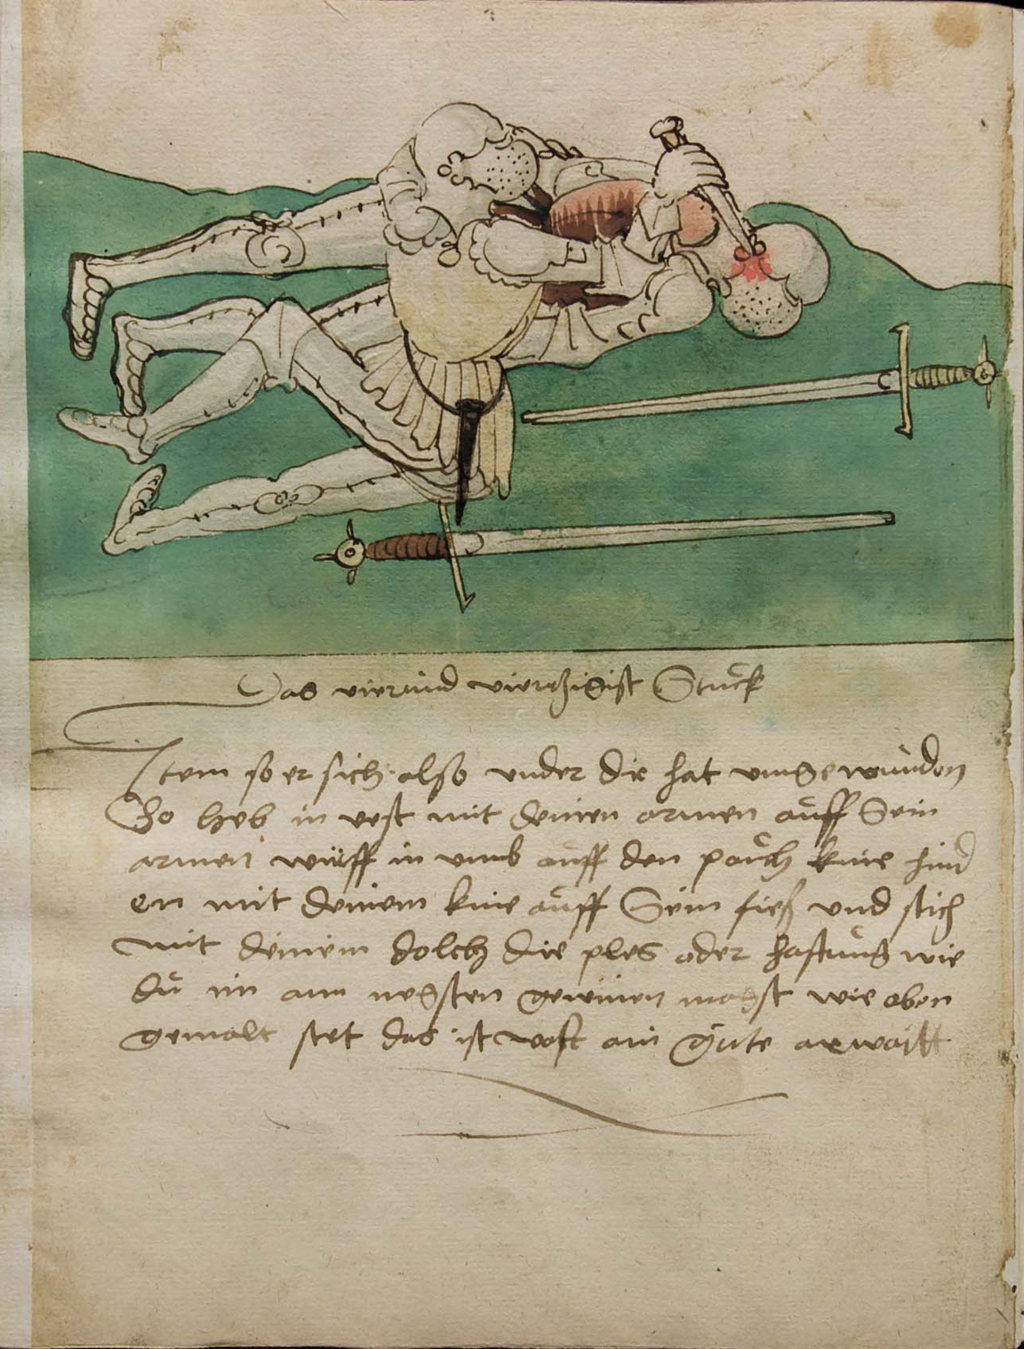 Das vierund viertzigist Stuck
Item so er sich also under die hat umgewunden
So heb in vest mit deinen armen auff Sein
armen würff in umb auff den pauch knie hind
en mit deinem knie auff Sein fieß und stich
mit deinem dolch die ples oder hafftung wie
du im am negsten gewinen magst wie oben
gemalt stet das ist vast ain gute arwaitt